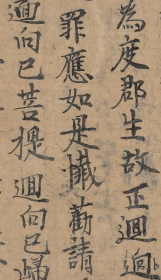 為度郡生故正迴向
罪應如是懺勸請
迴向已菩提迴向已歸